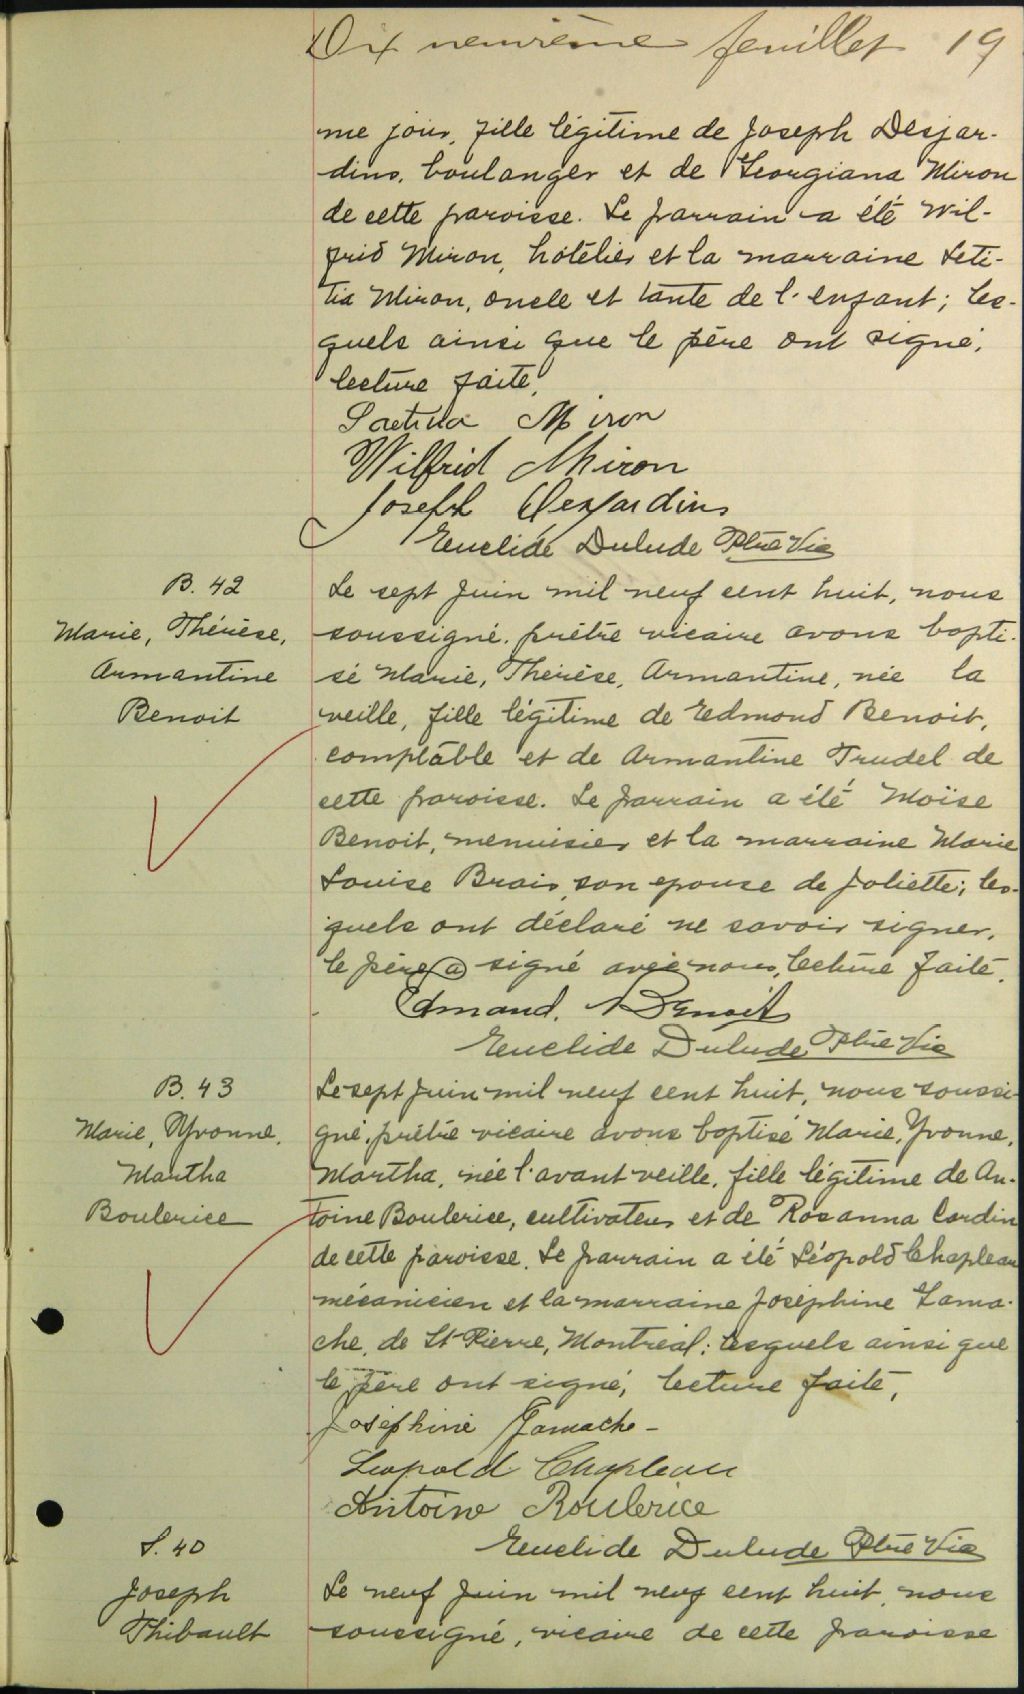 Dix neuvième feuillet 19
me jour, fille légitime de Joseph Desjar-
dins, boulanger et de Georgiana Miron
de cette paroisse. Le parrain a été Wil-
frid Miron, hôtelier et la marraine Leti-
tia Miron, oncle et tante de l'enfant; les-
quels ainsi que le père ont signé,
lecture faite,
Laetitia Miron
Wilfrid Miron
Joseph Desjardins
Euclide Dulude Ptre Vic
B. 42
Marie, Thérèse,
Armantine
Benoit
Le sept Juin mil neuf cent huit, nous
soussigné, prêtre vicaire avons bapti-
sé Marie, Thérèse, Armantine, née la
veille, fille légitime de Edmond Benoit,
comptable et de Armantine Trudel de
cette paroisse. Le parrain a été Moïse
Benoit, menuisier et la marraine Marie
Louise Brais, son epouse de Joliette; les-
quels ont déclaré ne savoir signer,
le père a signé avec nous, lecture faite.
Edmand. Benoit
Euclide Dulude Ptre Vic
B. 43
Marie, Yvonne,
Martha
Boulerice
Le sept Juin mil neuf cent huit, nous soussi-
gné, prêtre vicaire avons baptisé Marie, Yvonne,
Martha, née l'avant veille, fille légitime de An-
toine Boulerice, cultivateur et de Rosanna Cardin
de cette paroisse. Le parrain a été Léopold Chapleau
mécanicien et la marraine Joséphine Gama-
che, de St Pierre, Montréal; lesquels ainsi que
le père ont signé, lecture faite,
Joséphine Gamache -
Leopold Chapleau
Antoine Boulerice
Euclide Dulude Ptre Vic
S. 40
Joseph
Thibault
Le neuf Juin mil neuf cent huit, nous
soussigné, vicaire de cette paroisse